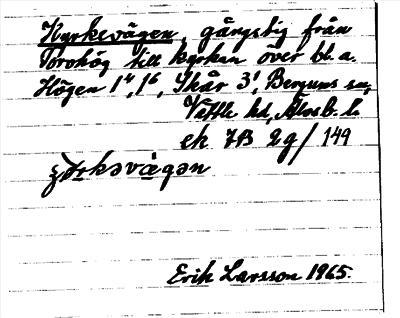 Kyrkevägen, gångstig från
Torohög till kyrkan över bl. a.
Högen 1⁴, 1⁶, Skår 3¹, Bergums sn,
Vättle hd, Älvsb. l.
ek 7B 2g/149
Erik Larsson 1965.